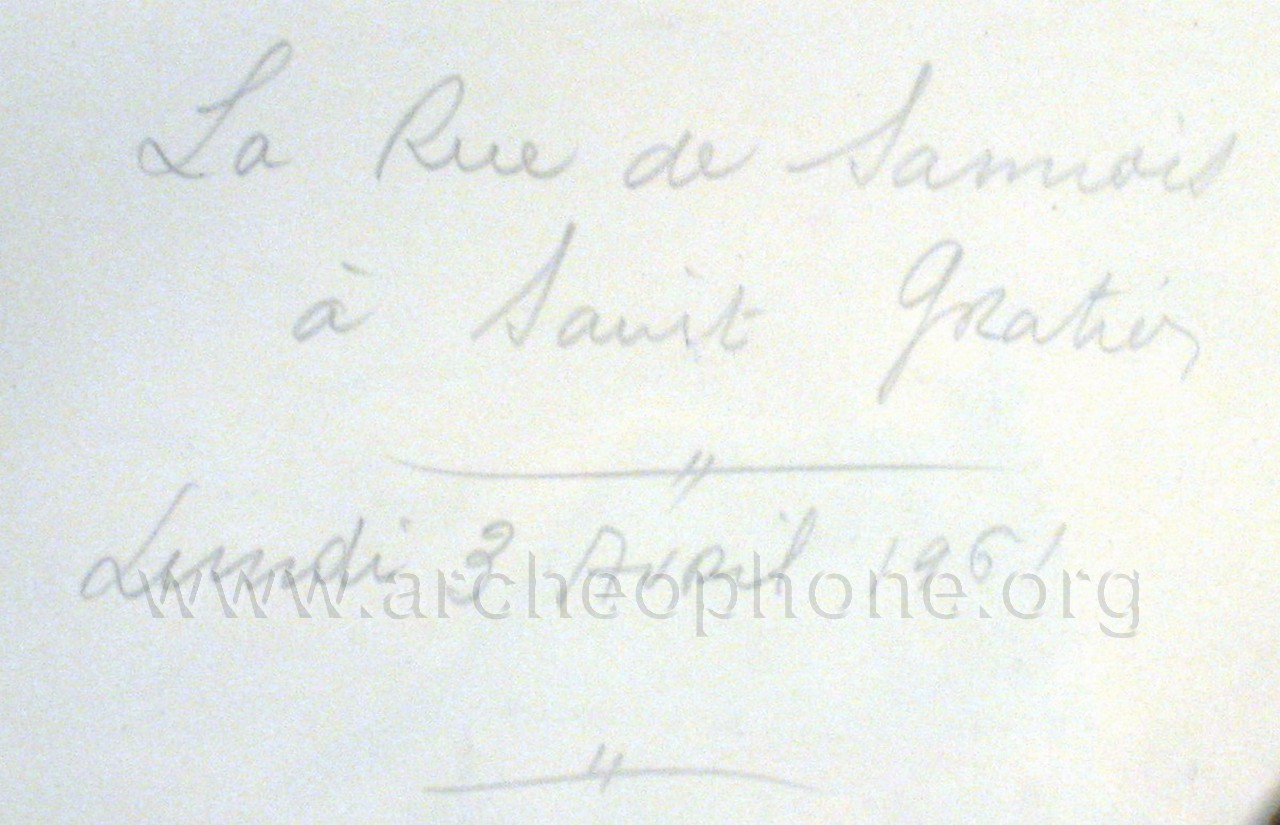 La Rue de Sannois
à Saint Gratien
Lundi 3 Avril 1961
www.archeophone.org